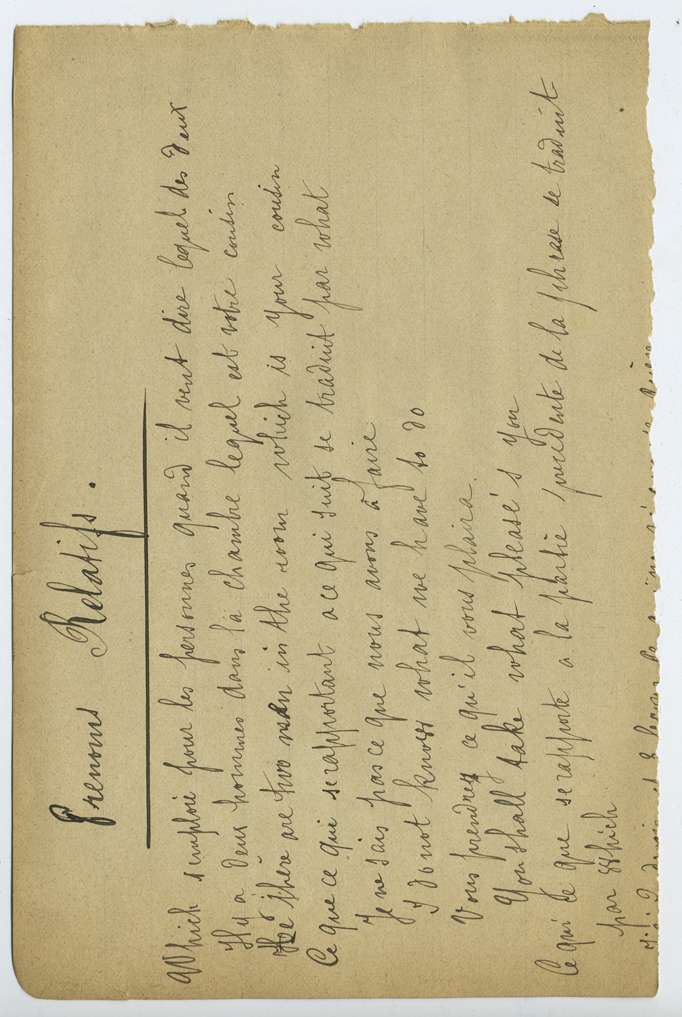 Prenoms Relatifs.
Which semploie pour les personnes quand il veut dire lequel des deux
Il y a deux hommes dans la chambre lequel est votre cousin
there are two men in the room which is your cousin
Ce que ce qui se rapportant a ce qui suit se traduit par what
Je ne sais pas ce que nous avons à faire
I do not know what we have to do
Vous prendrez ce qu'il vous plaira.
You shall take what pleases you
Ce qui ce que se rapporte a la partie précédente de la phrase se traduit
par Which